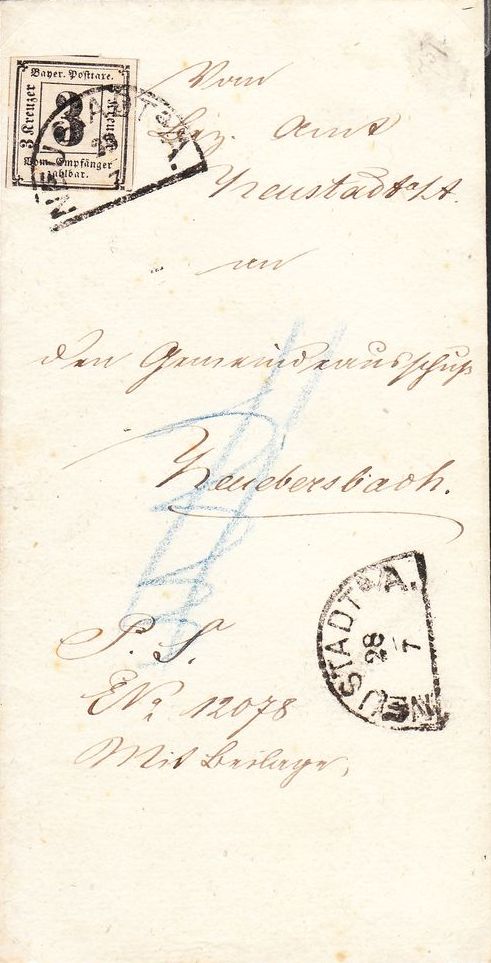 Bayer. Posttaxe.
3 Kreuzer
3
3 Kreuzer
Vom Empfänger
zahlbar.
NEUSTADT a/A.
Vom
Bez. Amt
Neustadt a/A.
an
den Gemeindeausschuß
Neuebersbach.
NEUSTADT a/A.
28
7
P. S.
E№ 12078
Mit Beilage.